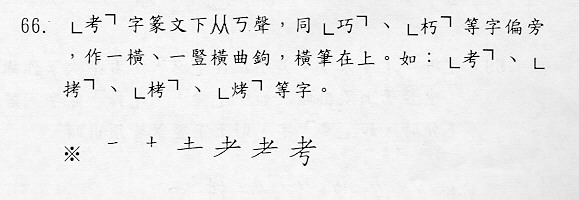 66. 「考」字篆文下从丂聲，同「巧」、「朽」等字偏旁
，作一橫、一豎橫曲鉤，橫筆在上。如：「考」、「
拷」、「栲」、「烤」等字。
※ 一 十 土 耂 考